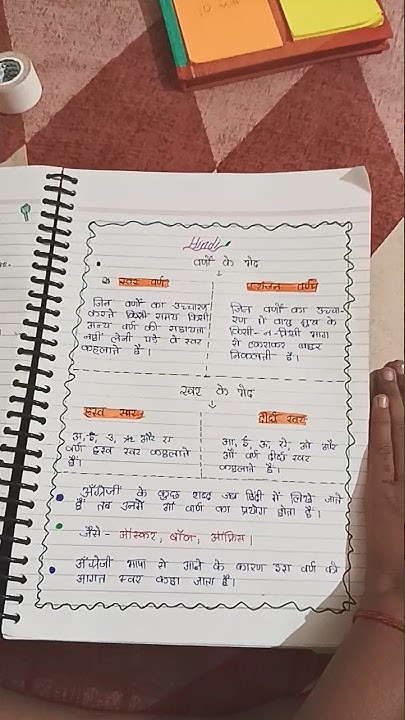 10 MIN
Hindi
वर्णों के भेद
स्वर वर्ण
जिन वर्णों का उच्चारण
करते किसी समय किसी
अन्य वर्ण की सहायता
नहीं लेनी पड़े वे स्वर
कहलाते हैं।
व्यंजन वर्ण
जिन वर्णों का उच्चा-
रण में वायु मुख के
किसी-न-किसी भाग
से टकराकर बाहर
निकलती हैं।
स्वर के भेद
ह्रस्व स्वर
अ, इ, उ, ऋ और
वर्ण ह्रस्व स्वर कहलाते
हैं।
दीर्घ स्वर
आ, ई, ऊ, ऐ, ओ और
औ वर्ण दीर्घ स्वर
कहलाते हैं।
अँग्रेजी के कुछ शब्द जब हिंदी में लिखे जाते
हैं तब उनमें वर्ण का प्रयोग होता हैं।
जैसे - ऑस्कर, बॉल, ऑफिस।
अँग्रेजी भाषा से आने के कारण इस वर्ण को
आगत स्वर कहा जाता हैं।